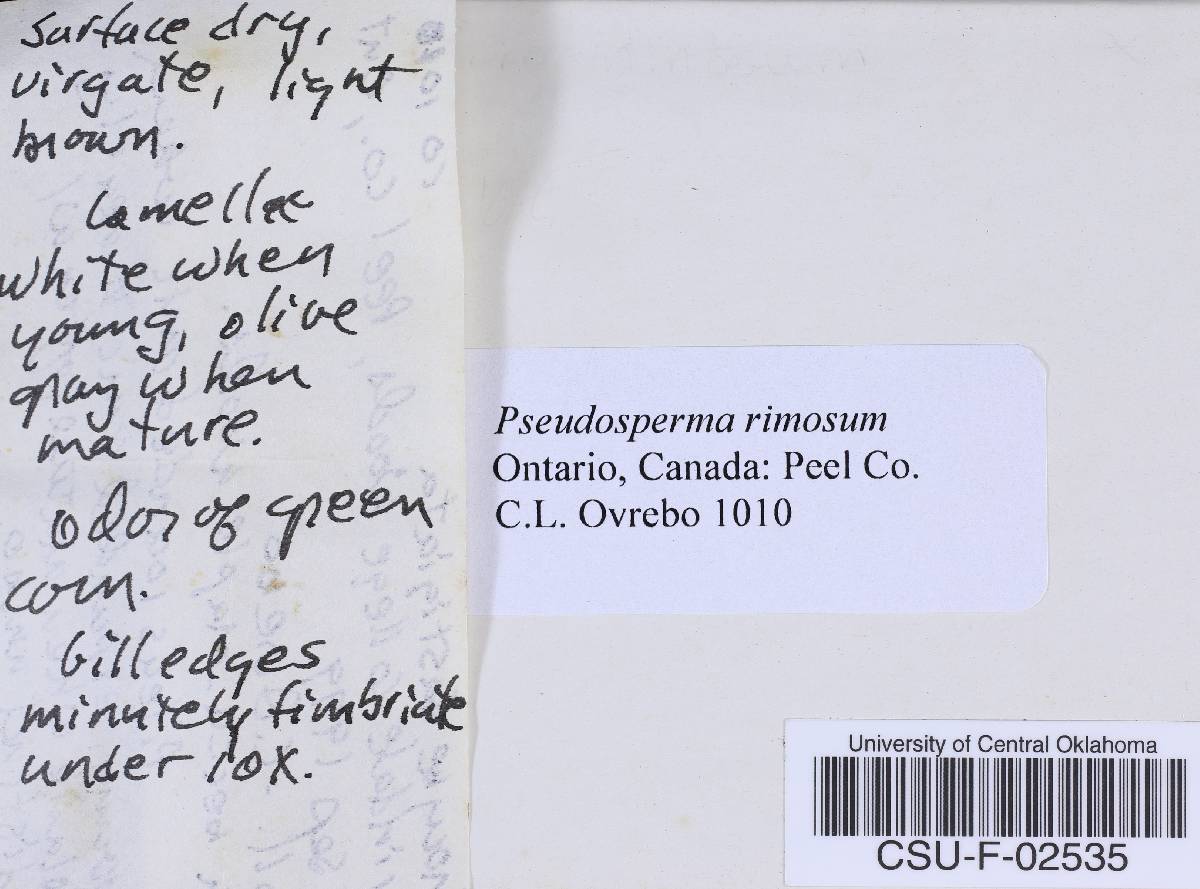 Surface dry,
virgate, light
brown.
Lamellae
white when
young, olive
gray when
mature.
Odor of green
corn.
Gill edges
minutely fimbriate
under 10x.
Pseudosperma rimosum
Ontario, Canada: Peel Co.
C.L. Ovrebo 1010
University of Central Oklahoma
CSU-F-02535